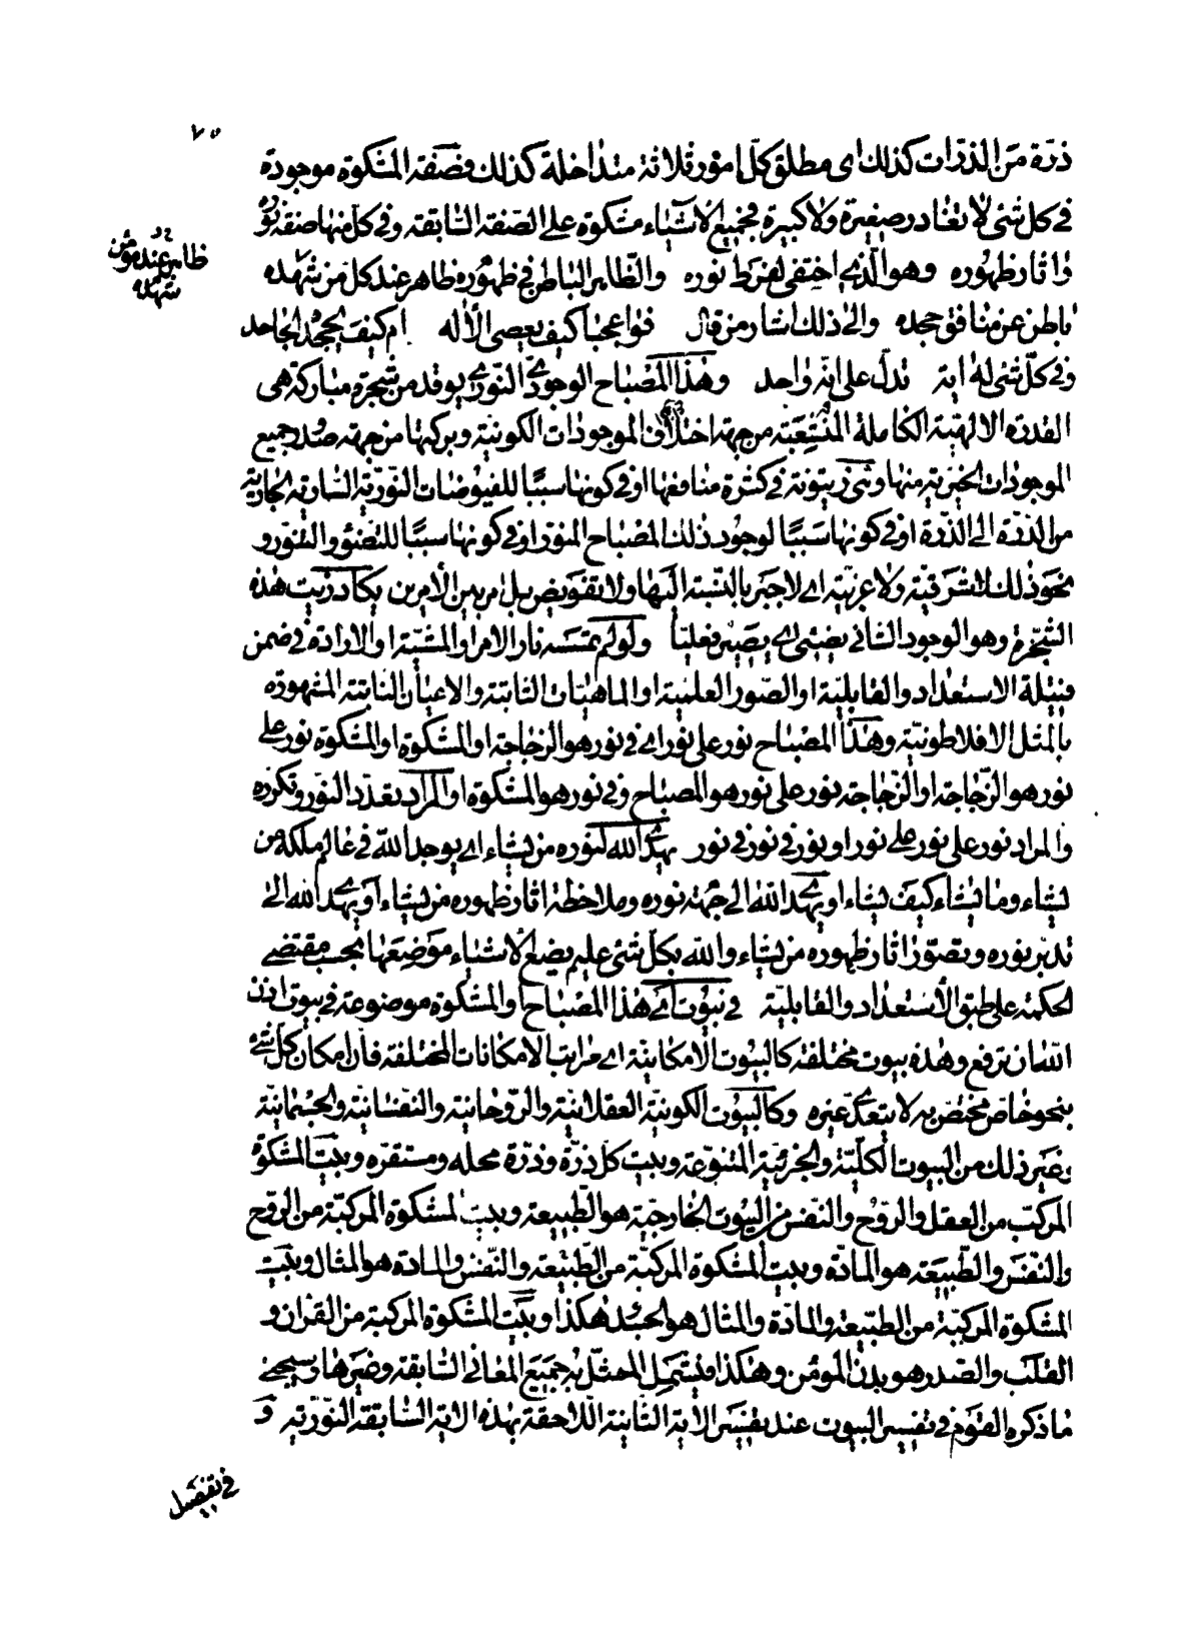 ٧٥
ذرّة من الذرّات كذلك اى مطلق كلّ امور ثلاثة متداخلة كذلك فصفة المشكوة موجودة
فى كل شئ لا تغادر صغيرة ولا كبيرة فجميع الاشياء مشكوة على الصّفة السّابقة وفى كل منها صفة نوره
واثار ظهوره وهو الّذى اختفى لفرط نوره والظّاهر الباطن فى ظهوره ظاهر عند كل من شهده
باطن عن منافق جحده والى ذلك اشار من قال فواعجبا كيف يعصى الاله ام كيف يجحده الجاحد
وفى كلّ شئ له اية تدلّ على انّه واحد وهذا المصباح الوجودىّ النّورىّ يوقد من شجرة مباركة هى
القدرة الالهيّة الكاملة المنشعبة من جهة اختلاف الموجودات الكونيّة وبركتها من جهة صدور جميع
الموجودات الخيريّة منها وهى زيتونة فى كثرة منافعها او فى كونها سببًا للفيوضات النّوريّة السّارية الجارية
من الذرّة الى الذرّة او فى كونها سببًا لوجود ذلك المصباح المنوّر او فى كونها سببًا للتضوّء والتنوّر و
نحو ذلك لا شرقيّة ولا غربيّة اى لا جبر بالنّسبة اليها ولا تفويض بل امر بين الامرين يكاد زيت هذه
الشّجرة وهو الوجود الثانى يضيئ اى يصير فعليّا ولو لم تمسسه نار الامر او المشيّة او الارادة فى ضمن
فتيلة الاستعداد والقابليّة او الصّور العلميّة او الماهيّات الثابتة والاعيان الثابتة المشهورة
بالمثل الافلاطونيّة وهذا المصباح نور على نور اى فى نور هو الزجاجة او المشكوة او المشكوة نور على
نور هو الزّجاجة او الزّجاجة نور على نور هو المصباح وفى نور هو المشكوة او المراد تعدّد النّور وتكرّره
والمراد نور على نور على نور او نور فى نور فى نور يهدى الله لنوره من يشاء اى يوجد الله فى عالم ملكه من
يشاء وما يشاء كيف يشاء او يهدى الله الى جهة نوره وملاحظة اثار ظهوره من يشاء او يهدى الله الى
تدبّر نوره وتصوّر اثار ظهوره من يشاء والله بكلّ شئ عليم يضع الاشياء مواضعها بحسب مقتضى
الحكمة على طبق الاستعداد والقابليّة فى بيوت اى هذا المصباح والمشكوة موضوعة فى بيوت اذن
الله ان ترفع وهذه بيوت مختلفة كالبيوت الامكانيّة اى مراتب الامكانات المختلفة فان امكان كل شئ
بنحو خاصّ مختصّ به لا يتعدّى غيره وكالبيوت الكونيّة العقلانيّة والرّوحانيّة والنّفسانيّة والجسمانيّة
وغير ذلك من البيوت الكلّيّة والجزئيّة المتنوّعة وبيت كل ذرّة وذرّة محله ومستقره وبيت المشكوة
المركب من العقل والرّوح والنّفس من البيوت الخارجيّة هو الطّبيعة وبيت المشكوة المركبّة من الرّوح
والنفس والطّبيعة هو المادّة وبيت المشكوة المركبّة من الطّبيعة والنّفس والمادة هو المثال وبيت
المشكوة المركبّة من الطّبيعة والمادّة والمثال هو الجسد هكذا وبيت المشكوة المركبة من القران و
القلب والصّدر هو بدن المؤمن وهكذا فليشمل الممثّل به جميع المعانى السّابقة وغيرها وسيجئ
ما ذكره القوم فى تفسير البيوت عند تفسير الاية الثانية اللاحقة بهذه الاية السّابقة النّوريّة و
فى تفصيل
ظاهر عند مؤمن
شهده